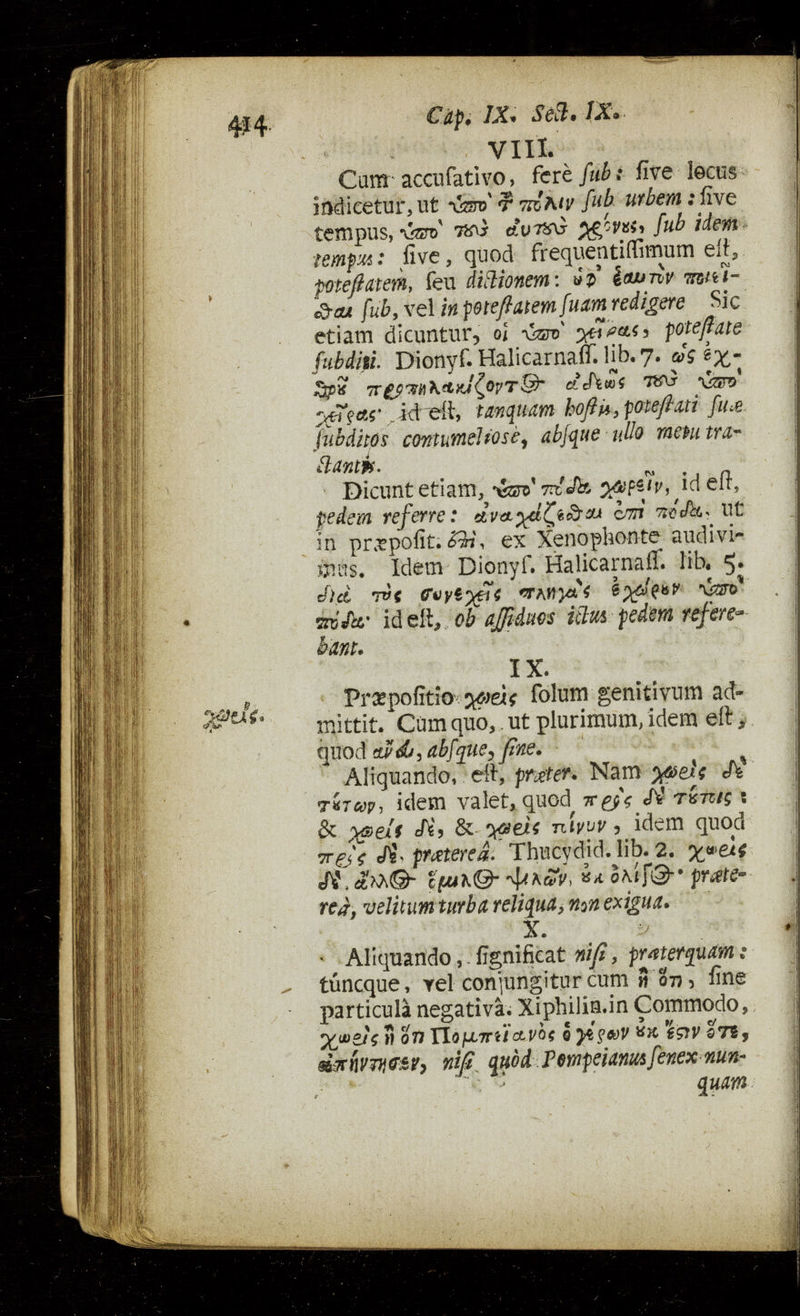 414
Cap. IX. Sect. IX.
VIII.
Cum accusativo, ferè sub: sive locus
indicetur, ut ὑπὸ τ̀ πόλιν sub urbem: sive
tempus, ὑπὸ τοῦ αὐτοῦ χρόνου, sub idem
tempus: sive, quod frequentissimum est,
potestatem, seu dictionem: ὑφ' ἑαυτὸν ποιεῖ-
σθαι sub, vel in potestatem suam redigere Sic
etiam dicuntur, οἱ ὑπὸ χεῖρας, potestate
subditi. Dionys. Halicarnass. lib. 7. ὡς ἐχ-
θροῦ προπηλακίζοντος ἀδεῶς τοὺς ὑπὸ
χεῖρας· id est, tanquam hostis, potestati suæ
subditos contumeliosè, absque ullo metu tra-
ctantis.
Dicunt etiam, ὑπὸ πόδα χωρεῖν, id est,
pedem referre: ἀναχάζεσθαι ἐπὶ πόδα, ut
in præposit. ἐπὶ, ex Xenophonte audivi-
mus. Idem Dionys. Halicarnass. lib. 5.
διὰ τὰς συνεχεῖς πληγὰς ἐχώρουν ὑπὸ
πόδα· id est, ob assiduos ictus pedem refere-
bant.
IX.
χωρίς.
Præpositio χωρὶς solum genitivum ad-
mittit. Cum quo, ut plurimum, idem est,
quod ἄνευ, absque, sine.
Aliquando, est, præter. Nam χωρὶς δὲ
τούτων, idem valet, quod πρὸς δὲ τούτοις:
& χωρὶς δὲ, & χωρὶς τοίνυν, idem quod
πρὸς δὲ, præterea. Thucydid. lib. 2. χωρὶς
δὲ ἄλλος ὅμιλος ψιλῶν, οὐκ ὀλίγος· præte-
rea, velitum turba reliqua, non exigua.
X.
Aliquando, significat nisi, præterquam:
tuncque, vel conjungitur cum ἢ ὅτι, sine
particulâ negativâ. Xiphilin. in Commodo,
χωρὶς ἢ ὅτι Πομπηϊανὸς ὁ γέρων οὐκ ἔστιν ὅτε,
ἀπήντησεν, nisi quòd Pompeianus senex nun-
quam